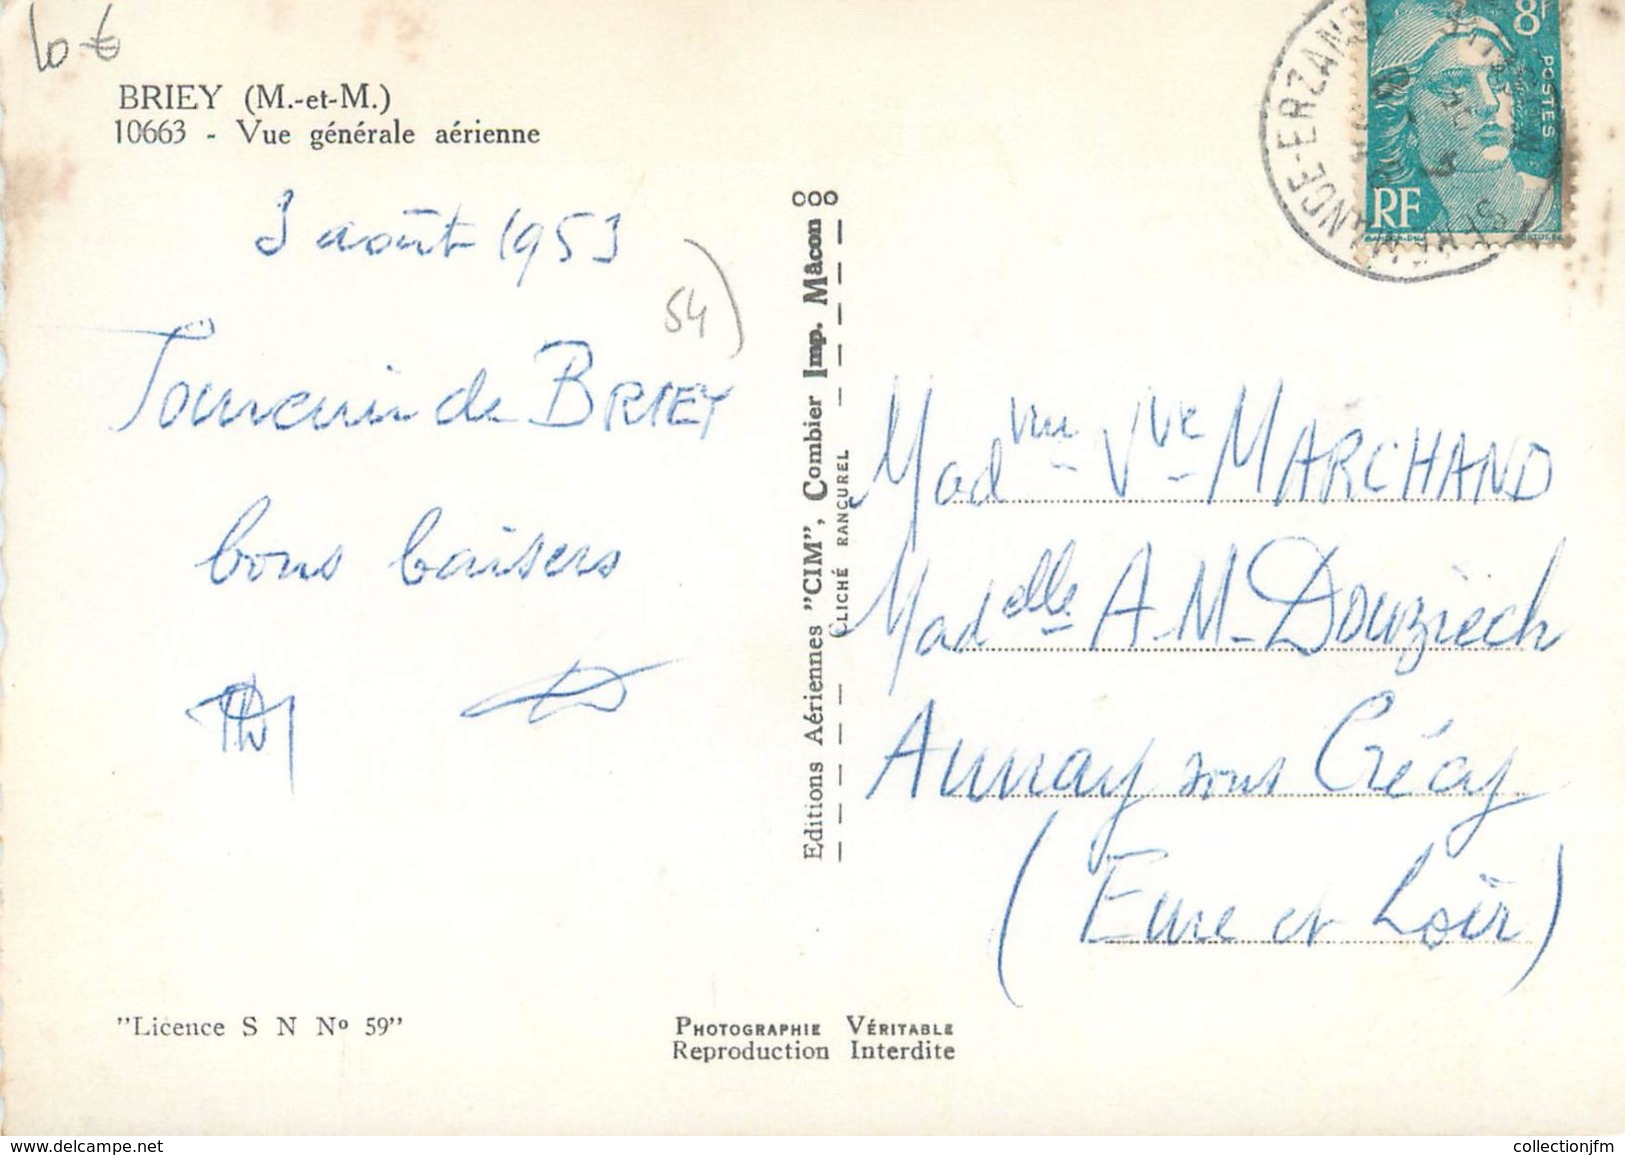 10 €
BRIEY (M.-et-M.)
10663 - Vue générale aérienne
3 août 1953
54
Souvenir de BRIEY
bons baisers
Editions Aériennes "CIM", Combier Imp. Mâcon
CLICHÉ RANCUREL
8F
POSTES
RF
ANCE-ERZAN
Madme Vve MARCHAND
Madelle A.M. Douziech
Aunay sous Crécy
(Eure et Loir)
"Licence S N Nº 59"
PHOTOGRAPHIE VÉRITABLE
Reproduction Interdite
www.delcampe.net
collectionjfm